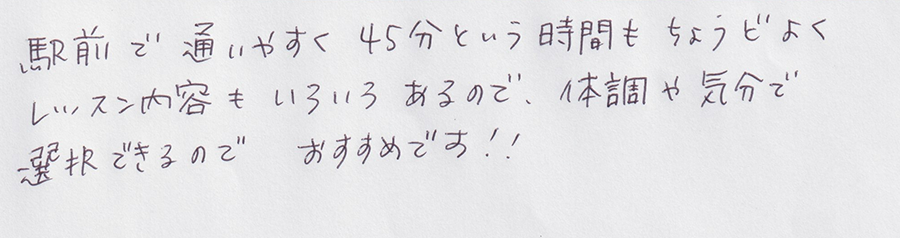 駅前で通いやすく45分という時間もちょうどよく
レッスン内容もいろいろあるので、体調や気分で
選択できるので おすすめです!!